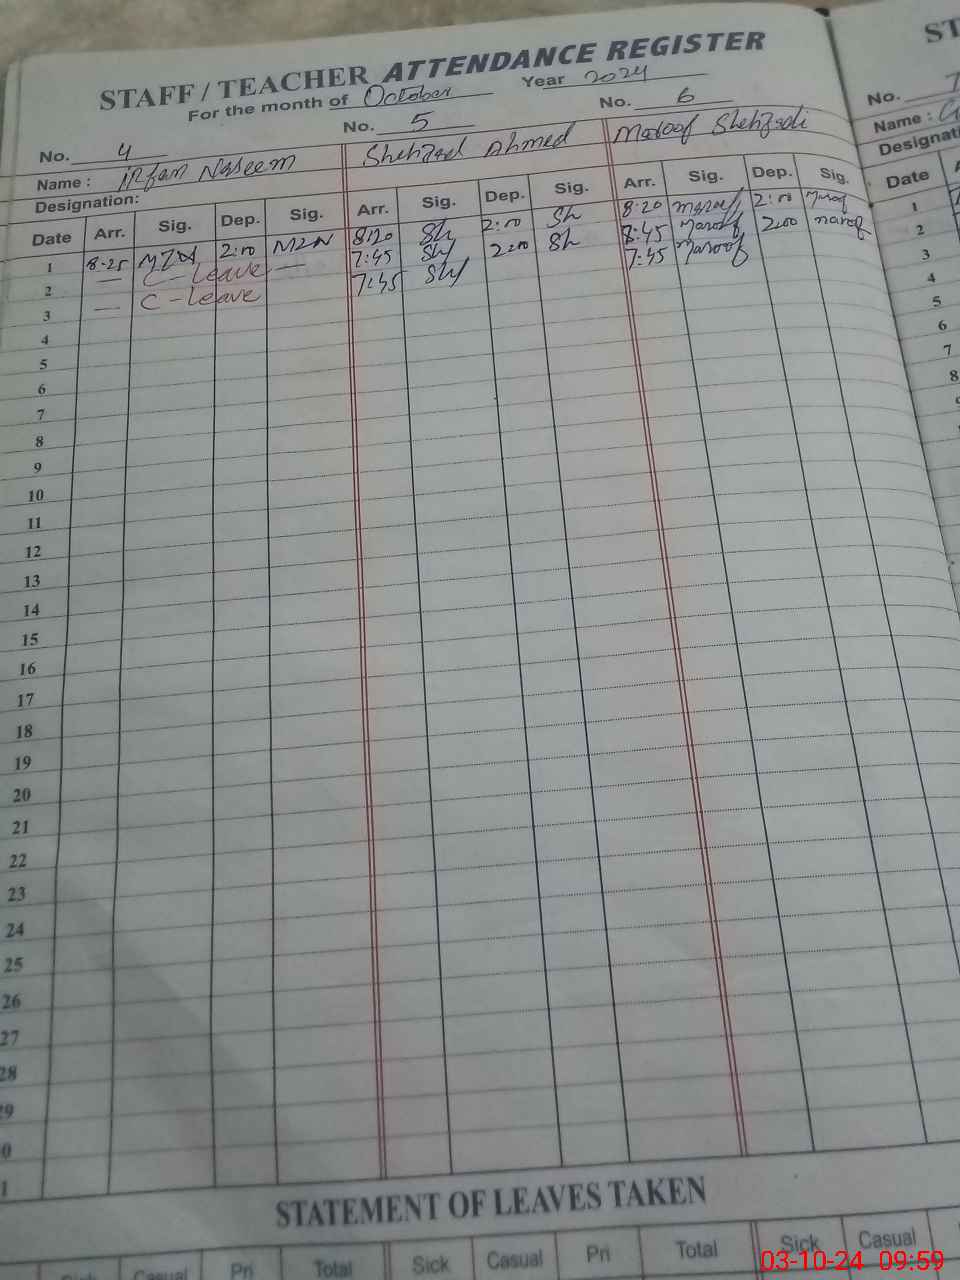 STAFF / TEACHER ATTENDANCE REGISTER
For the month of October Year 2024
No. 4 No. 5 No. 6
Name : IRfan Naseem Shehzad Ahmed Maroof Shehzadi
Designation:
Date Arr. Sig. Dep. Sig. Arr. Sig. Dep. Sig. Arr. Sig. Dep. Sig.
1 8-25 2:00 8:20 Sh 2:00 Sh 8-20 Maroof 2:00 Maroof
2 — C - Leave — 7:45 Sh 2:00 Sh 7:45 Maroof 2:00 Maroof
3 — C - Leave 7:45 Sh 7:45 Maroof
4
5
6
7
8
9
10
11
12
13
14
15
16
17
18
19
20
21
22
23
24
25
26
27
28
29
0
1
STATEMENT OF LEAVES TAKEN
Sick Casual Pri Total Sick Casual Pri Total Sick Casual
No.
Name :
Designati
Date
1
2
3
4
5
6
7
8
03-10-24 09:59